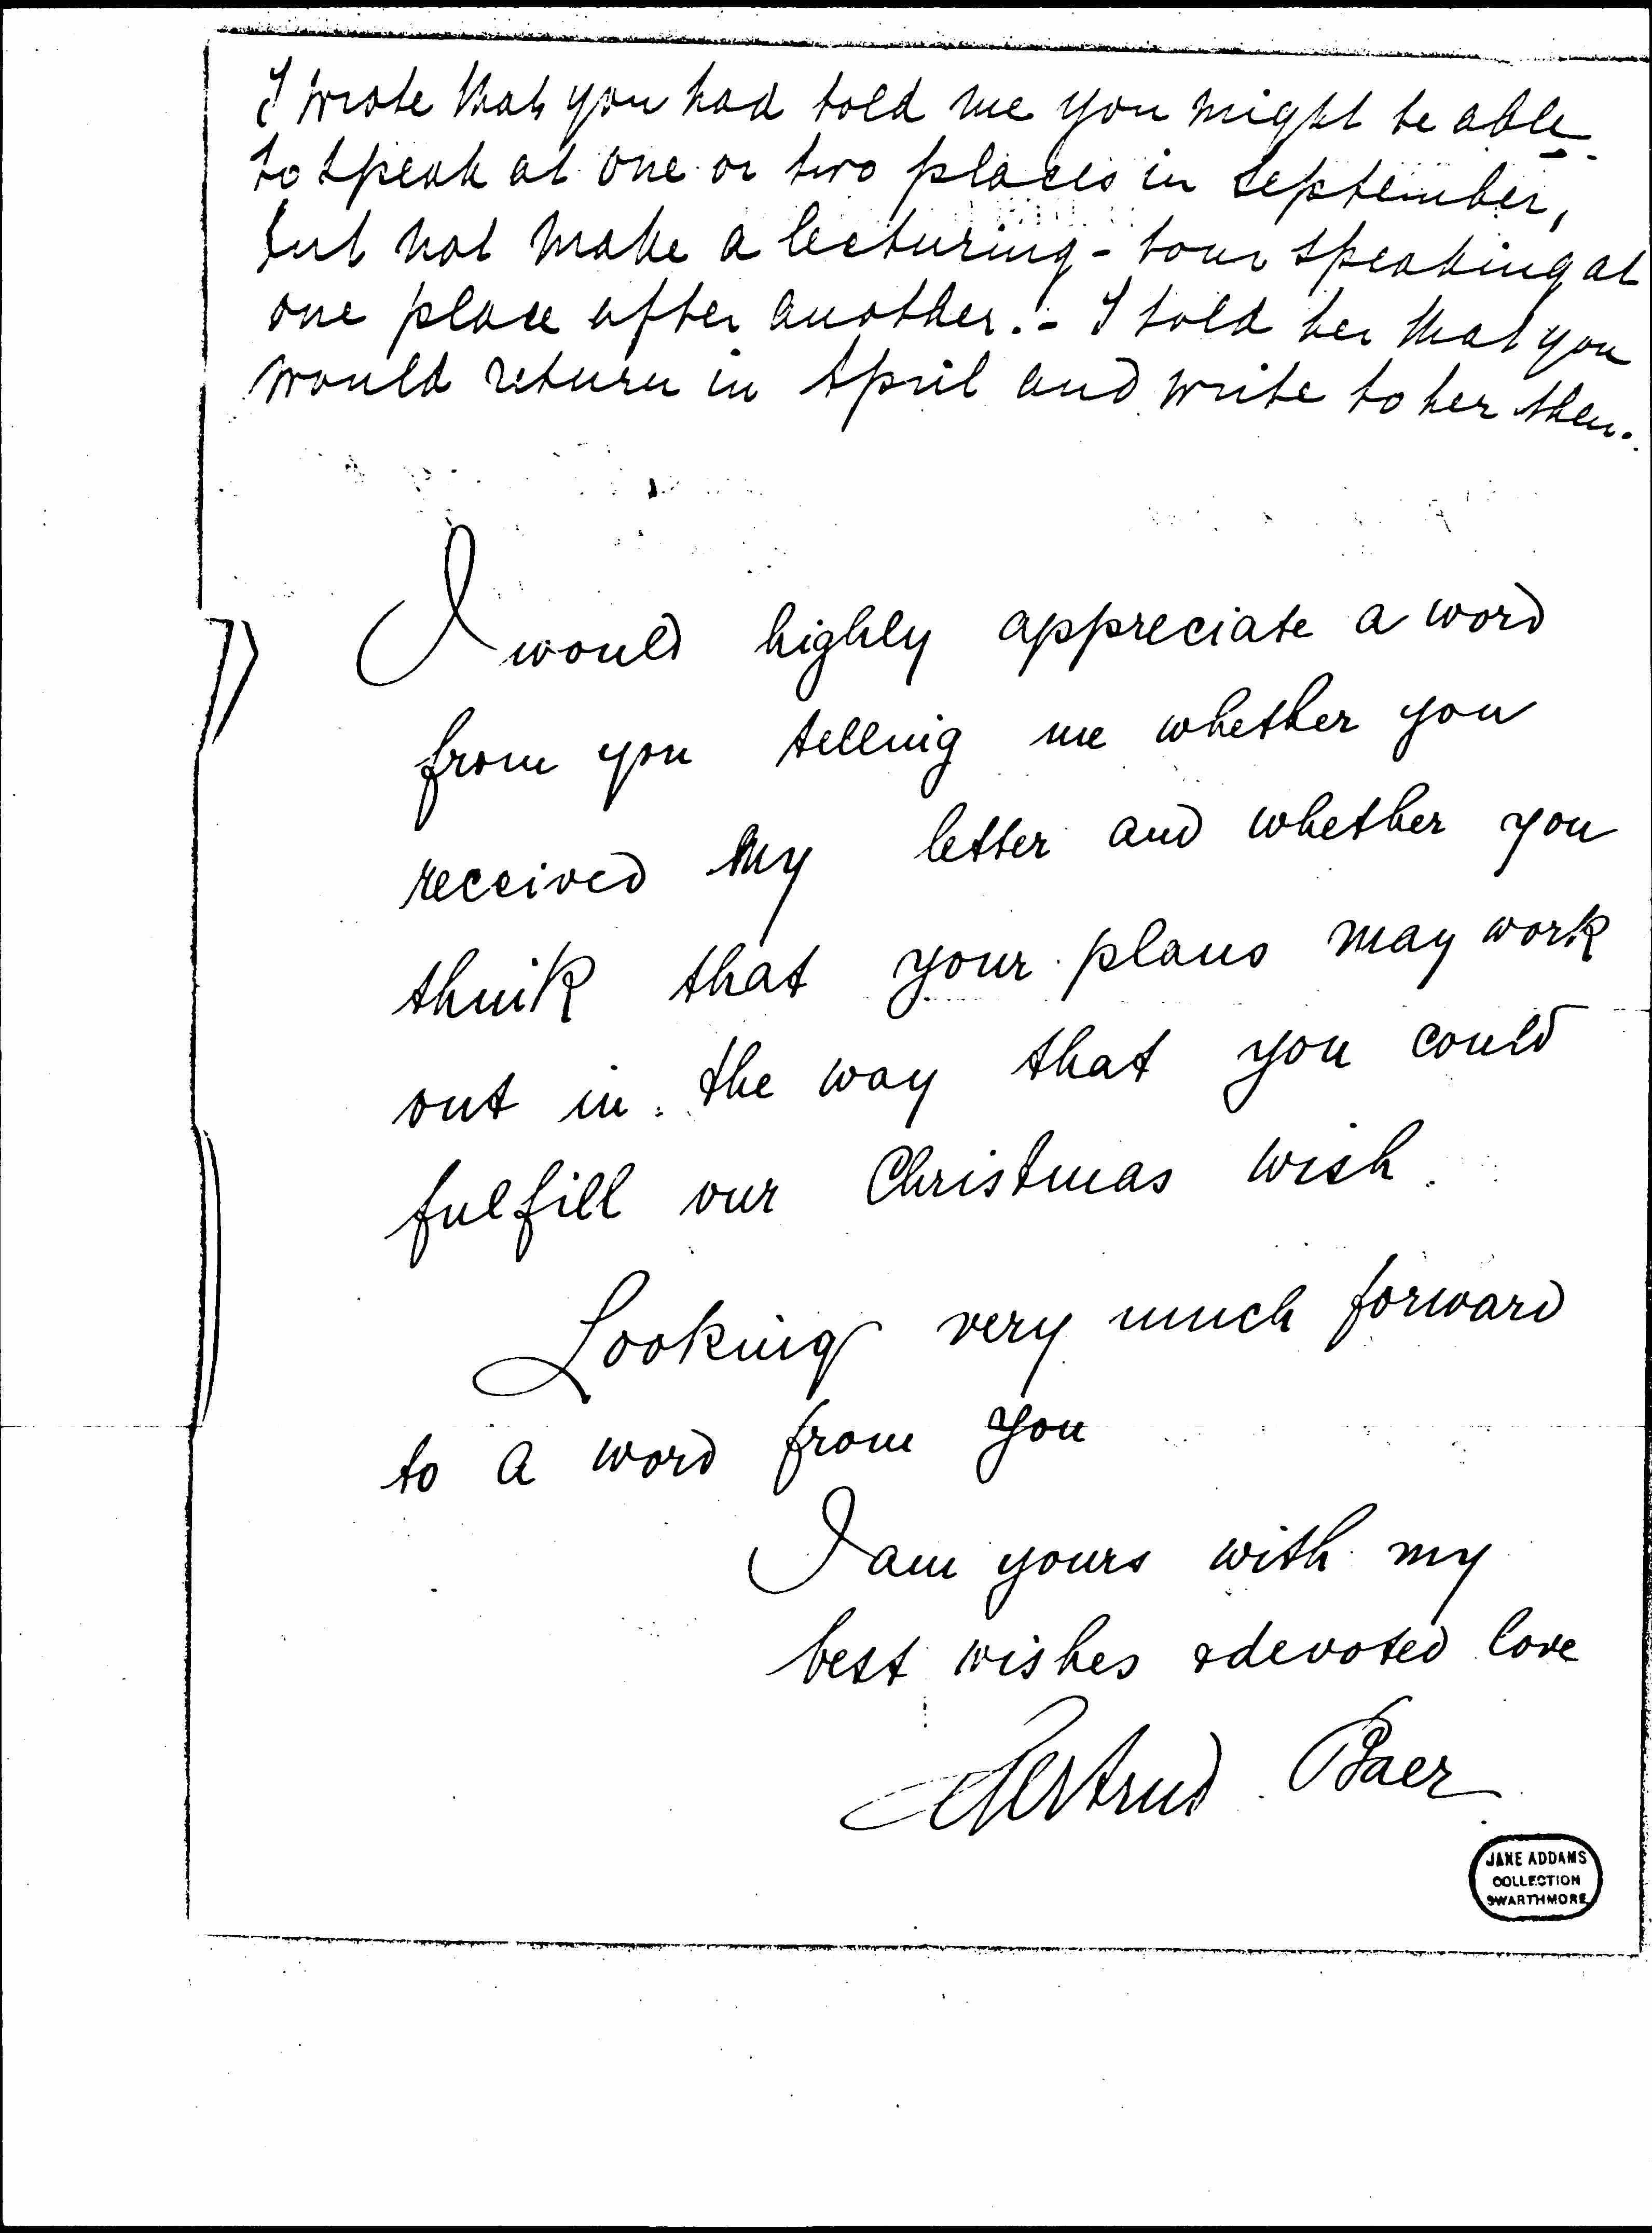 I wrote that you had told me you might be able
to speak at one or two places in September,
but not make a lecturing-tour speaking at
one place after another. - I told her that you
would return in April and write to her then.
I would highly appreciate a word
from you telling me whether you
received my letter and whether you
think that your plans may work
out in the way that you could
fulfill our Christmas wish.
Looking very much forward
to a word from you
I am yours with my
best wishes & devoted love
Gertrud Baer
JANE ADDAMS
COLLECTION
SWARTHMORE